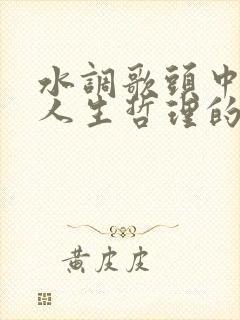 水調歌頭中
人生哲理的
黃皮皮